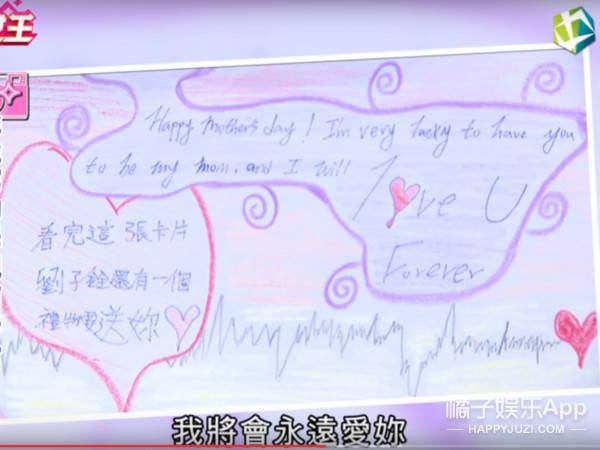 王
Happy mother's day! I'm very lucky to have you
to be my mom, and I will
love U
Forever
看完這張卡片
劉子銓還有一個
禮物要送妳
我將會永遠愛妳
橘子娱乐App
HAPPYJUZI.COM